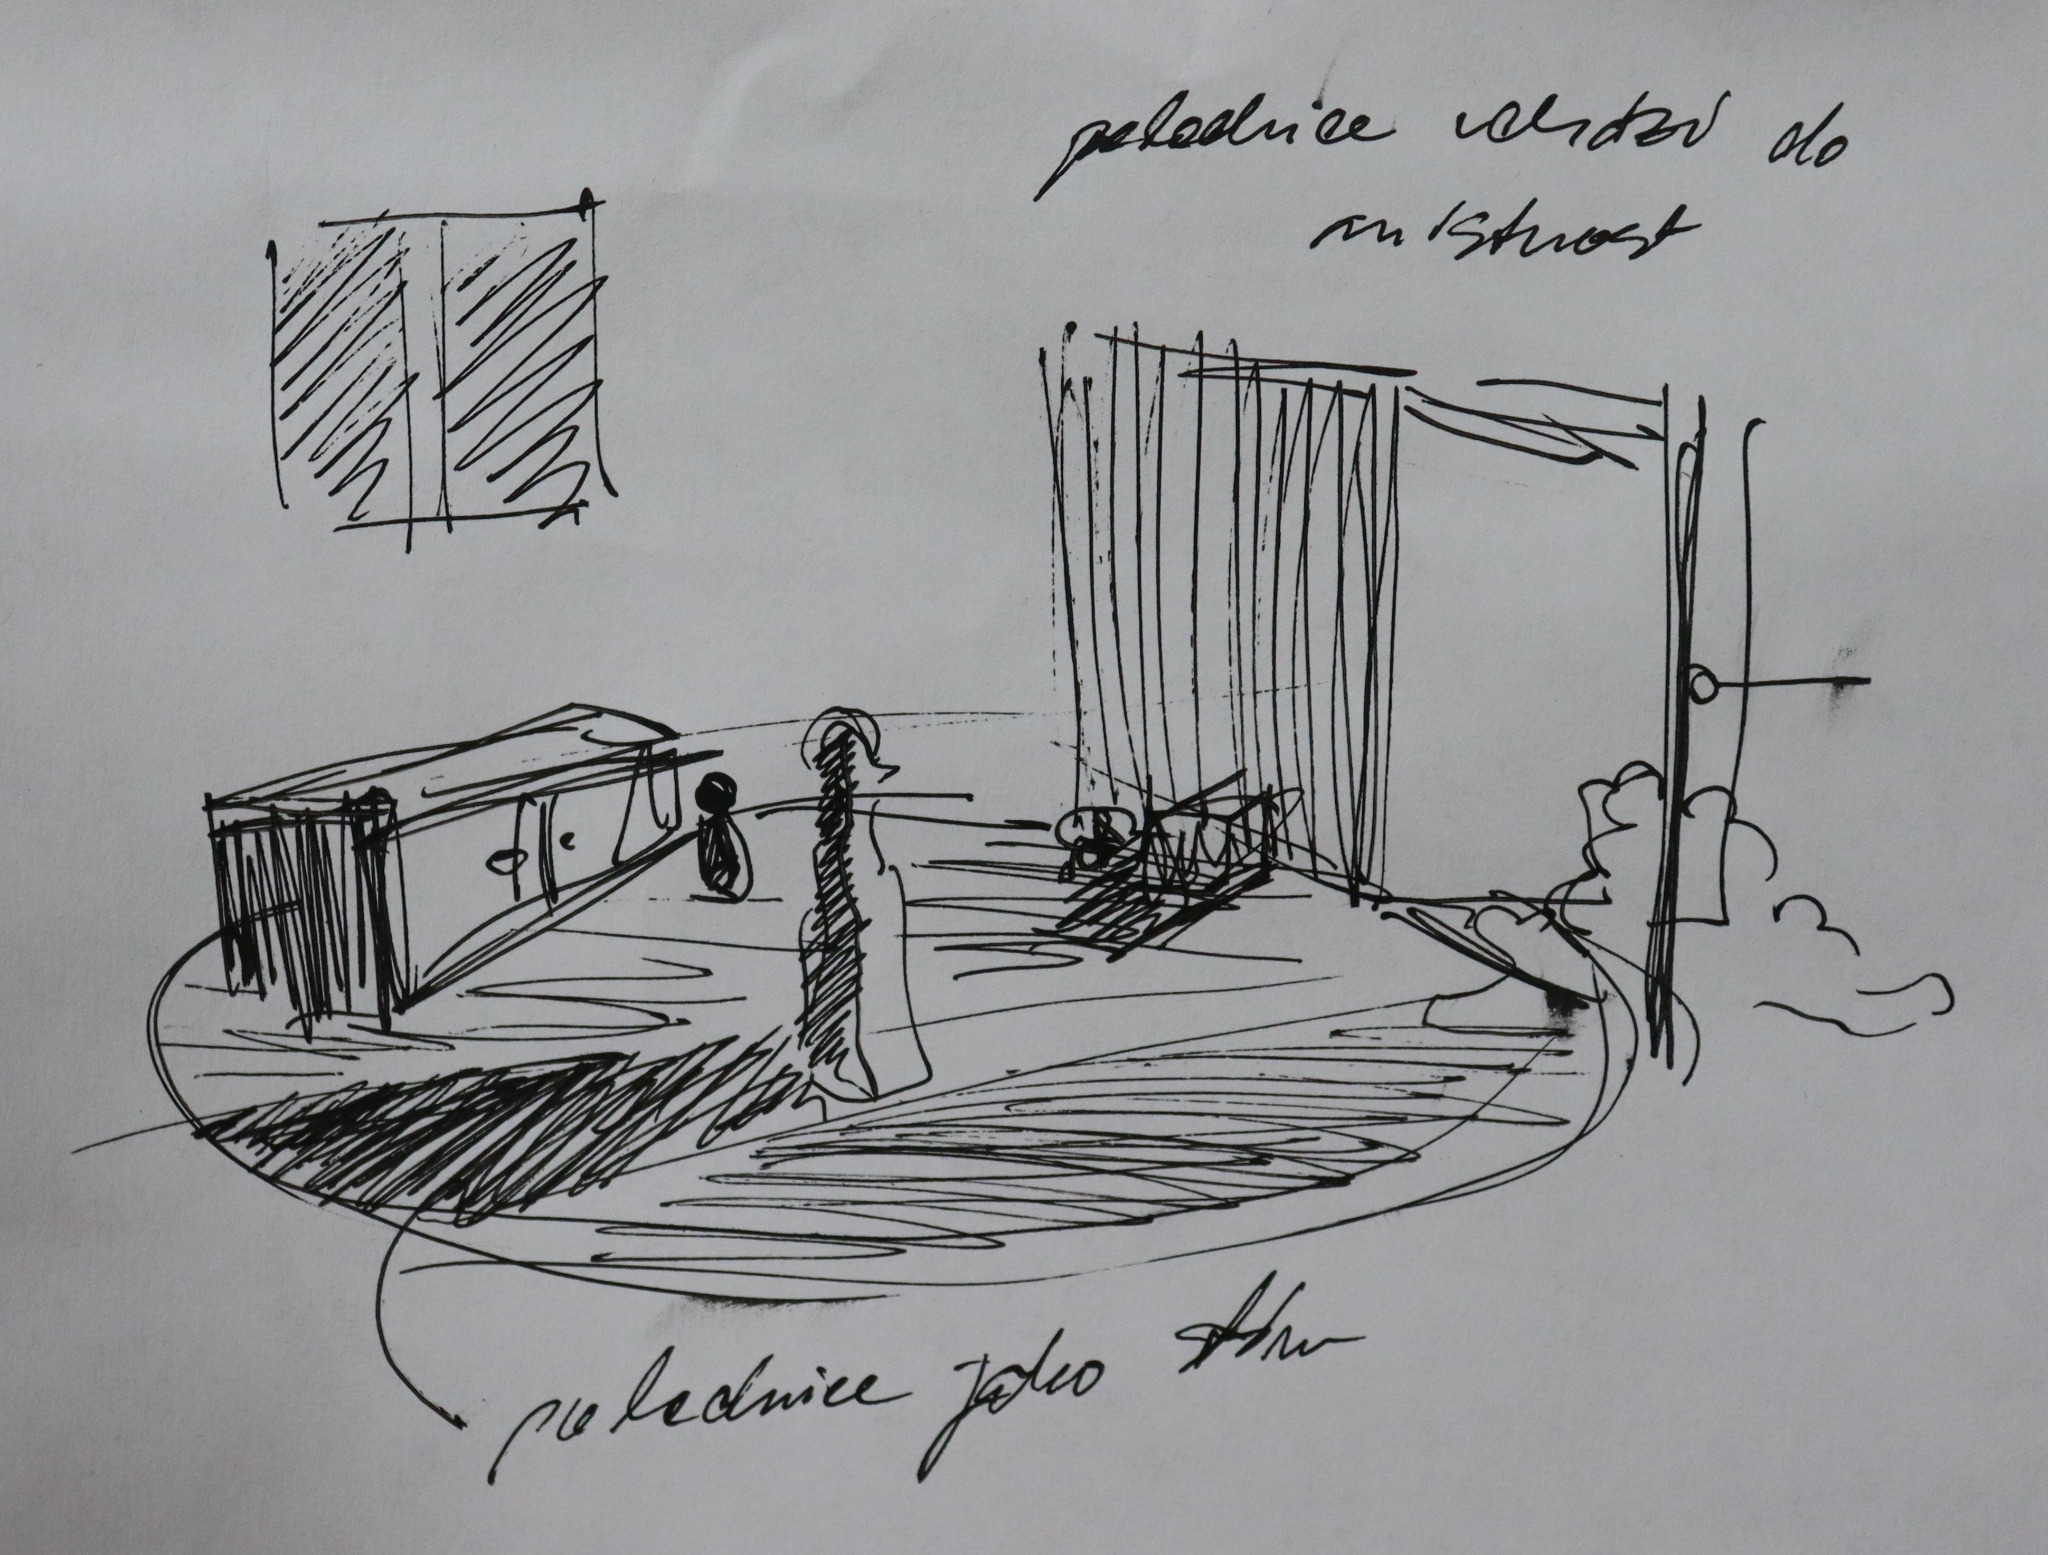 polednice vchází do
místnost
polednice jako stín